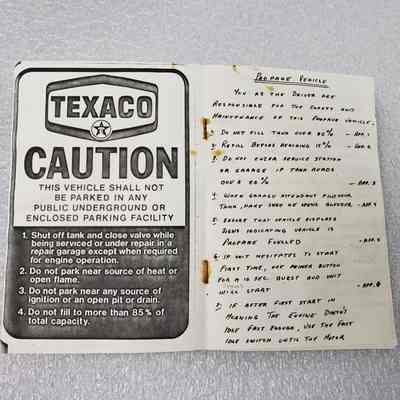 TEXACO
T
CAUTION
THIS VEHICLE SHALL NOT
BE PARKED IN ANY
PUBLIC UNDERGROUND OR
ENCLOSED PARKING FACILITY
1. Shut off tank and close valve while
being serviced or under repair in a
repair garage except when required
for engine operation.
2. Do not park near source of heat or
open flame.
3. Do not park near any source of
ignition or an open pit or drain.
4. Do not fill to more than 85% of
total capacity.
PROPANE VEHICLE
YOU AS THE DRIVER ARE
RESPONSIBLE FOR THE SAFETY AND
MAINTENANCE OF THIS PROPANE VEHICLE.
1) DO NOT FILL TANK OVER 80% - APP. 1
2) REFILL BEFORE REACHING 15% -
3) DO NOT ENTER SERVICE STATION
OR GARAGE IF TANK READS
OVER 80% - APP. 3
4) WHEN GARAGE ATTENDANT FILLS
TANK, MAKE SURE HE WEARS GLOVES -
5) ENSURE THAT VEHICLE DISPLAYS
SIGNS INDICATING VEHICLE IS
PROPANE FUELLED - APP. 5
6) IF UNIT HESITATES TO START
FIRST TIME, HIT PRIMER BUTTON
FOR A 10 SEC. BURST AND UNIT
WILL START - APP. 6
7) IF AFTER FIRST START IN
MORNING THE ENGINE DOESN'T
IDLE FAST ENOUGH, USE THE FAST
IDLE SWITCH UNTIL THE MOTOR